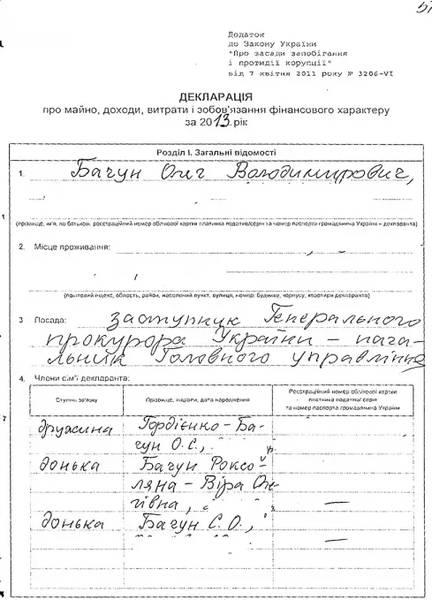 Додаток
до Закону України
"Про засади запобігання
і протидії корупції"
від 7 квітня 2011 року № 3206-VI
ДЕКЛАРАЦІЯ
про майно, доходи, витрати і зобов'язання фінансового характеру
за 2013 рік
Розділ I. Загальні відомості
1. Бачун Олег Володимирович,
(прізвище, ім'я, по батькові, реєстраційний номер облікової картки платника податків/серія та номер паспорта громадянина України - декларанта)
2. Місце проживання:
(поштовий індекс, область, район, населений пункт, вулиця, номер: будинку, корпусу, квартири декларанта)
3 Посада: Заступник Генерального
прокурора України – нача-
льник Головного управління
4. Члени сім'ї декларанта:
Ступінь зв'язку
Прізвище, ініціали, дата народження
Реєстраційний номер облікової картки
платника податків/серія
та номер паспорта громадянина України
дружина Гордієнко-Ба-
чун О.С.,
донька Бачун Роксо-
ляна-Віра Оле-
гівна, —
донька Бачун С.О., —